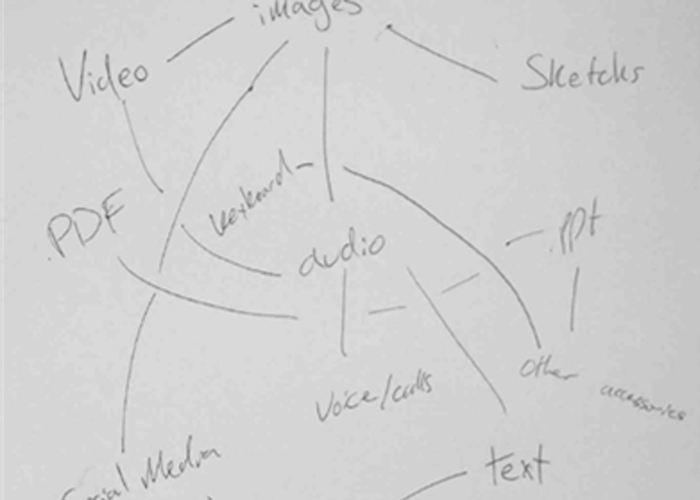 images
Video
Sketchs
keyboard
PDF
.ppt
audio
Other accessories
Voice/calls
Social Media
text